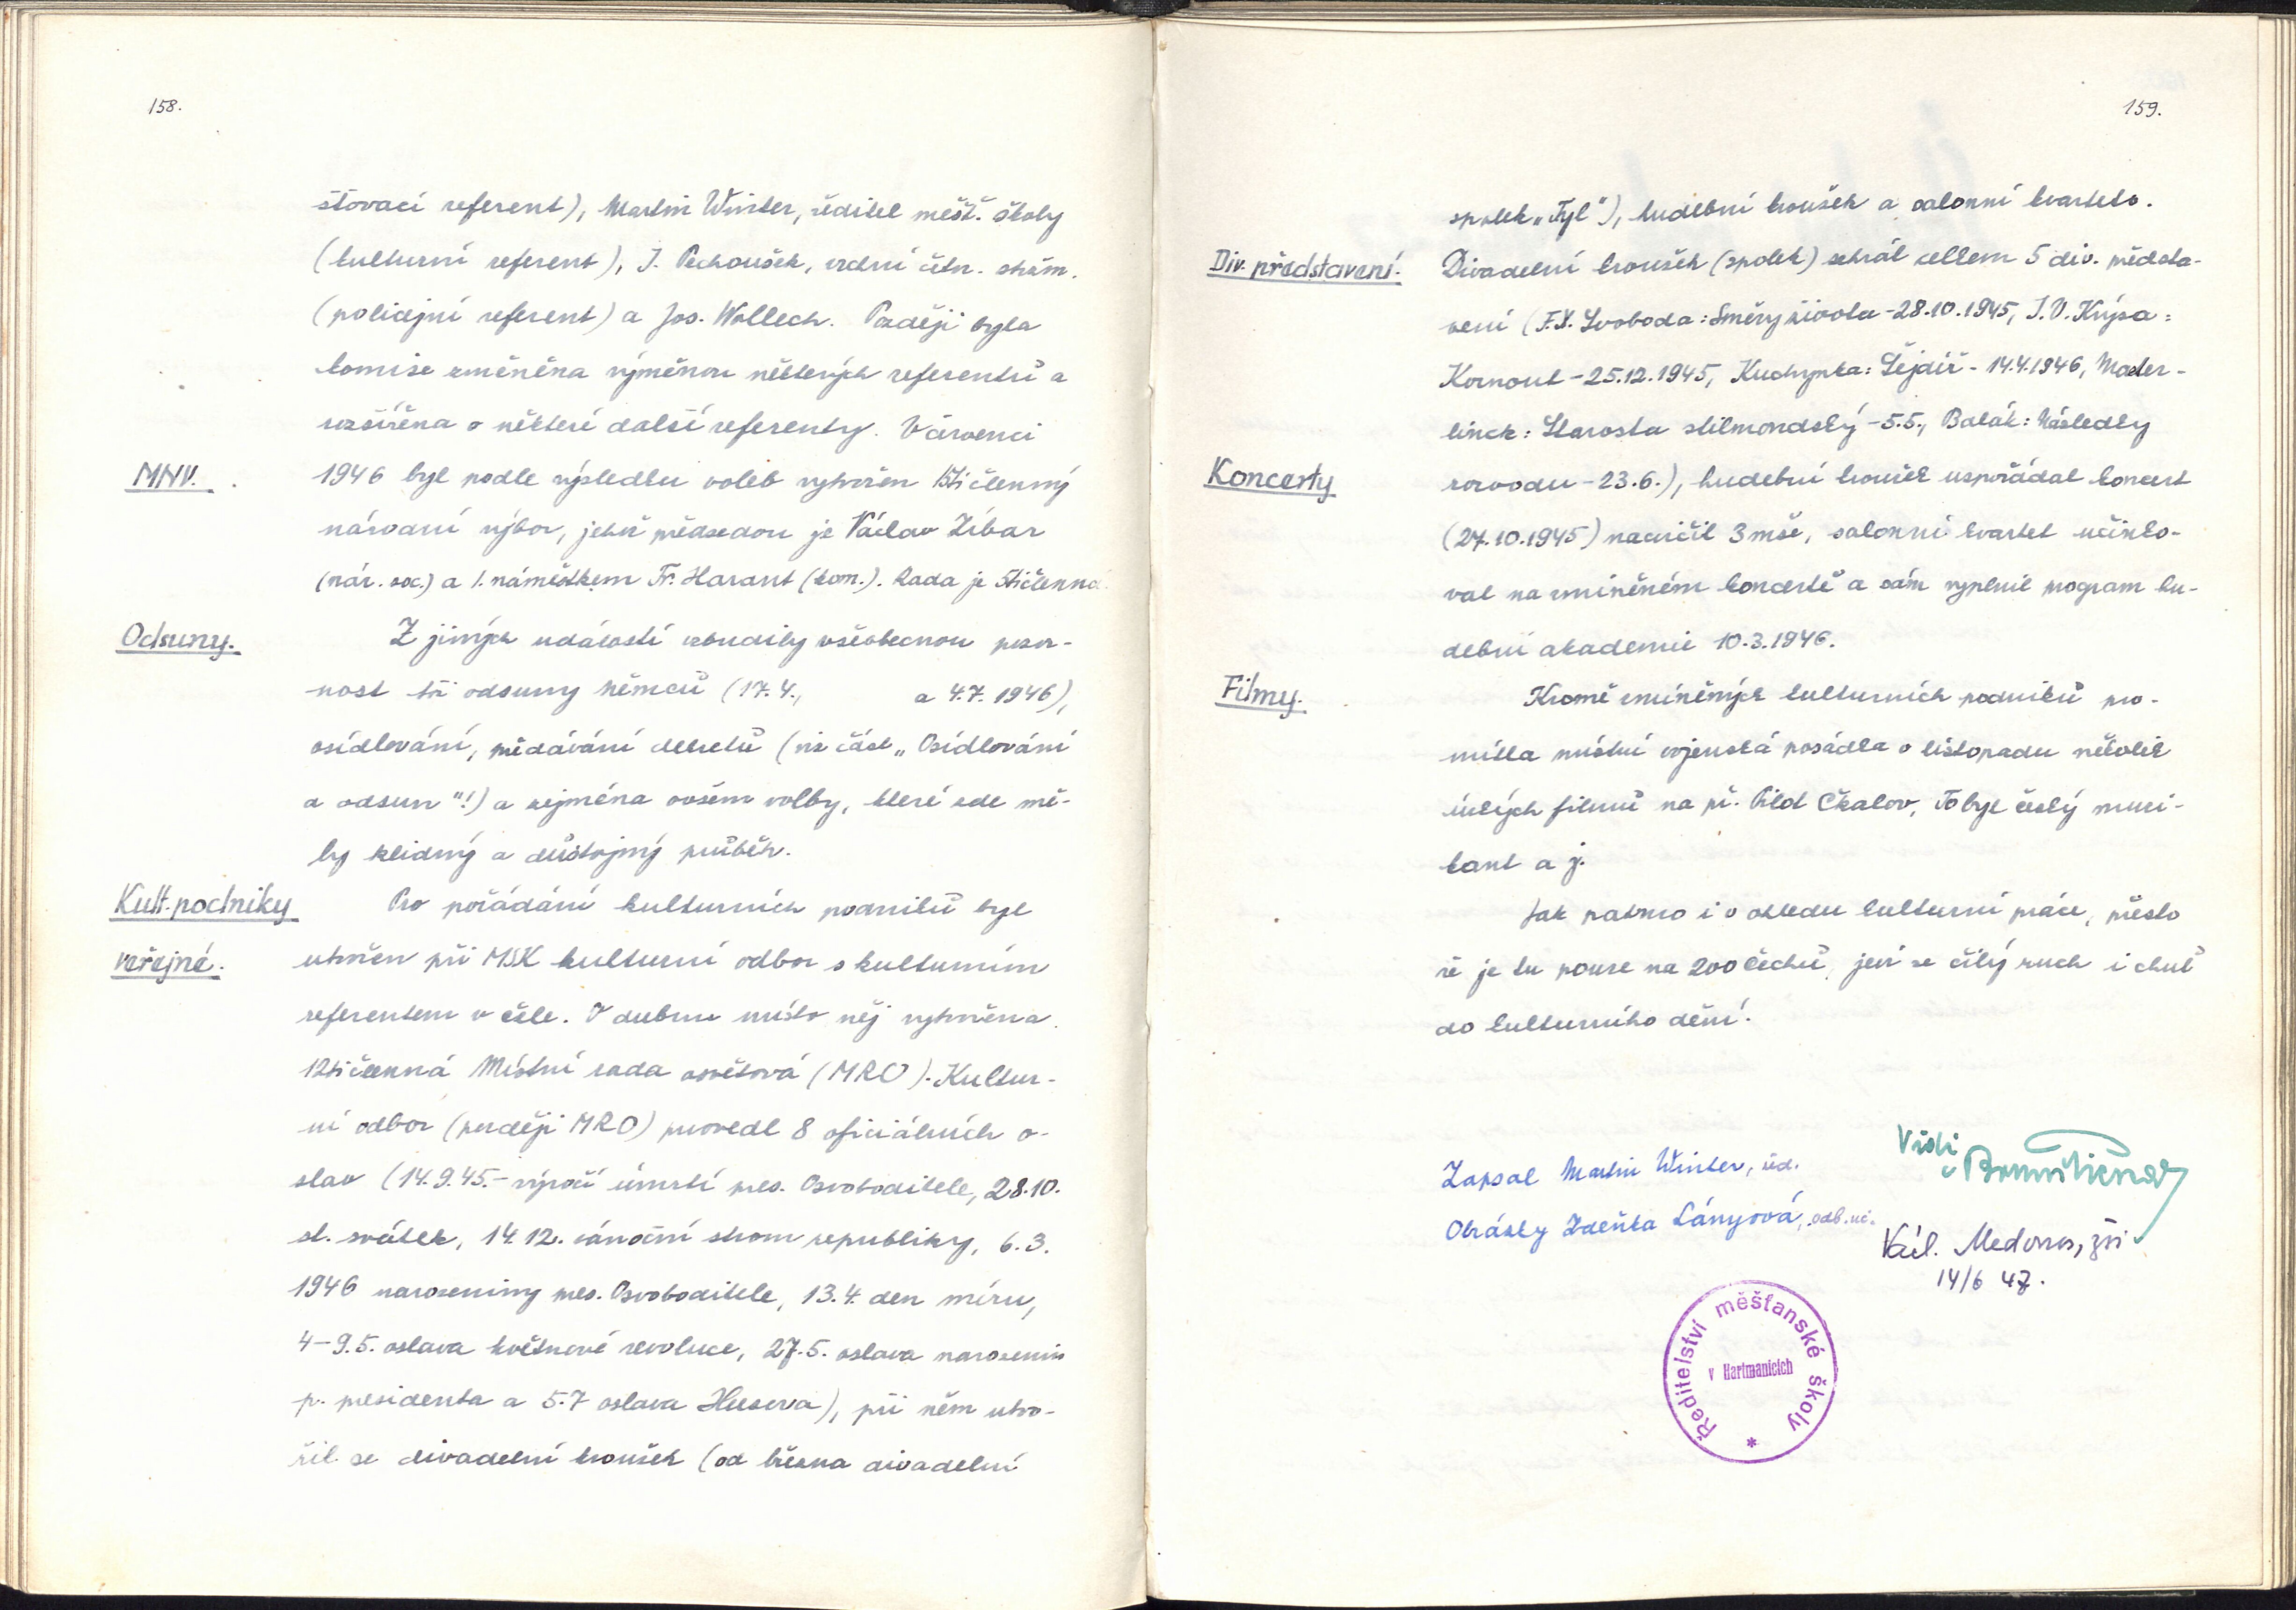 158.
šťovací referent), Martin Winter, ředitel měšť. školy
(kulturní referent), J. Pechoušek, vrchní četn. strážm.
(policejní referent) a Jos. Wollech. Později byla
komise změněna výměnou některých referentů a
rozšířena o některé další referenty. V červenci
MNV.
1946 byl podle výsledku voleb vytvořen 15tičlenný
národní výbor, jehož předsedou je Václav Zíbar
(nár. soc.) a 1. náměstkem Fr. Harant (kom.). Rada je 5tičlenná.
Odsuny.
Z jiných událostí vzbudily všeobecnou pozor-
nost tři odsuny němců (17.4., a 4.7. 1946),
osídlování, předávání dekretů (viz část „Osídlování
a odsun"!) a zejména ovšem volby, které zde mě-
ly klidný a důstojný průběh.
Kult. podniky
veřejné.
Pro pořádání kulturních podniků byl
utvořen při MSK kulturní odbor s kulturním
referentem v čele. V dubnu místo něj vytvořena
12tičlenná Místní rada osvětová (MRO). Kultur-
ní odbor (později MRO) provedl 8 oficiálních o-
slav (14.9.45.- výročí úmrtí pres. Osvoboditele, 28.10.
st. svátek, 14.12. vánoční strom republiky, 6.3.
1946 narozeniny pres. Osvoboditele, 13.4. den míru,
4-9.5. oslava květnové revoluce, 27.5. oslava narozenin
p. presidenta a 5.7 oslava Husova), při něm utvo-
řil se divadelní kroužek (od března divadelní
159.
spolek „Tyl"), hudební kroužek a salonní kvarteto.
Div. představení.
Divadelní kroužek (spolek) sehrál celkem 5 div. předsta-
vení (F.X. Svoboda: Směry života - 28.10.1945, J.V. Krýsa:
Kornout - 25.12.1945, Kuchynka: Šejdíř - 14.4.1946, Maeter-
linck: Starosta stilmondský - 5.5., Balák: Následky
Koncerty
rozvodu - 23.6.), hudební kroužek uspořádal koncert
(27.10.1945) nacvičil 3 mše, salonní kvartet účinko-
val na zmíněném koncertě a sám vyplnil program hu-
dební akademie 10.3.1946.
Filmy.
Kromě zmíněných kulturních podniků pro-
mítla místní vojenská posádka v listopadu několik
úzkých filmů na př. Pilot Čkalov, To byl český muzi-
kant a j.
Jak patrno i v ohledu kulturní práce, přesto
že je tu pouze na 200 Čechů, jeví se čilý ruch i chuť
do kulturního dění.
Zapsal Martin Winter, řed.
Obrázky Zdeňka Lányová, odb. uč.
Vidi
Václ.
14/6 47.
Ředitelství měšťanské školy
v Hartmanicích
*